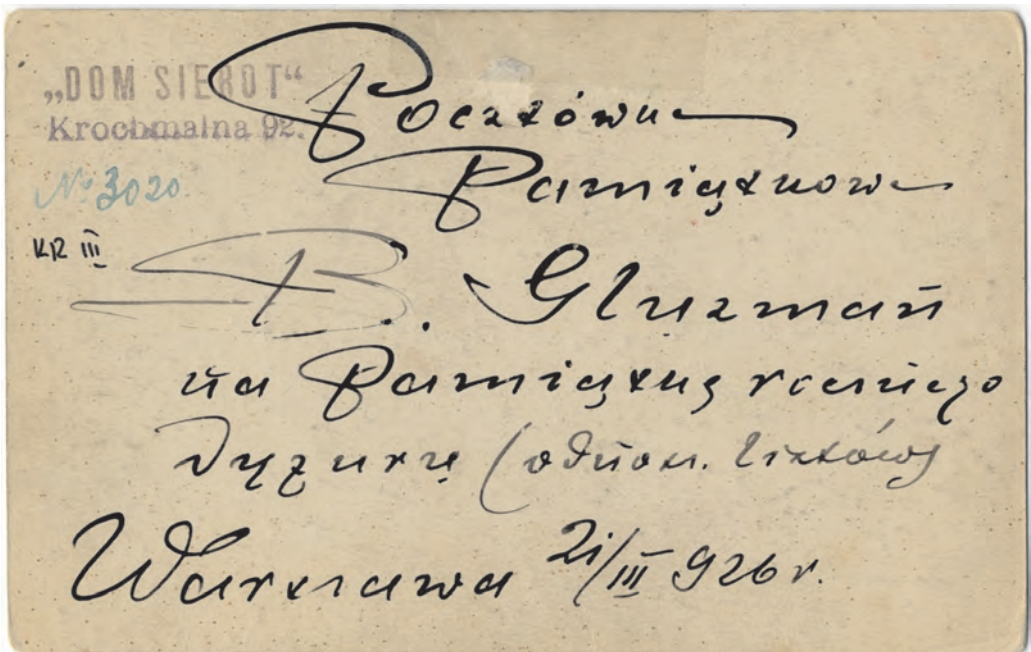 „DOM SIEROT“
Krochmalna 92.
№ 3020.
KR III
Pocztówka
Pamiątkowa
B. Gluzman
na Pamiątkę rannego
Dyżuru (odnosz. listów)
Warszawa 21/III 926 r.